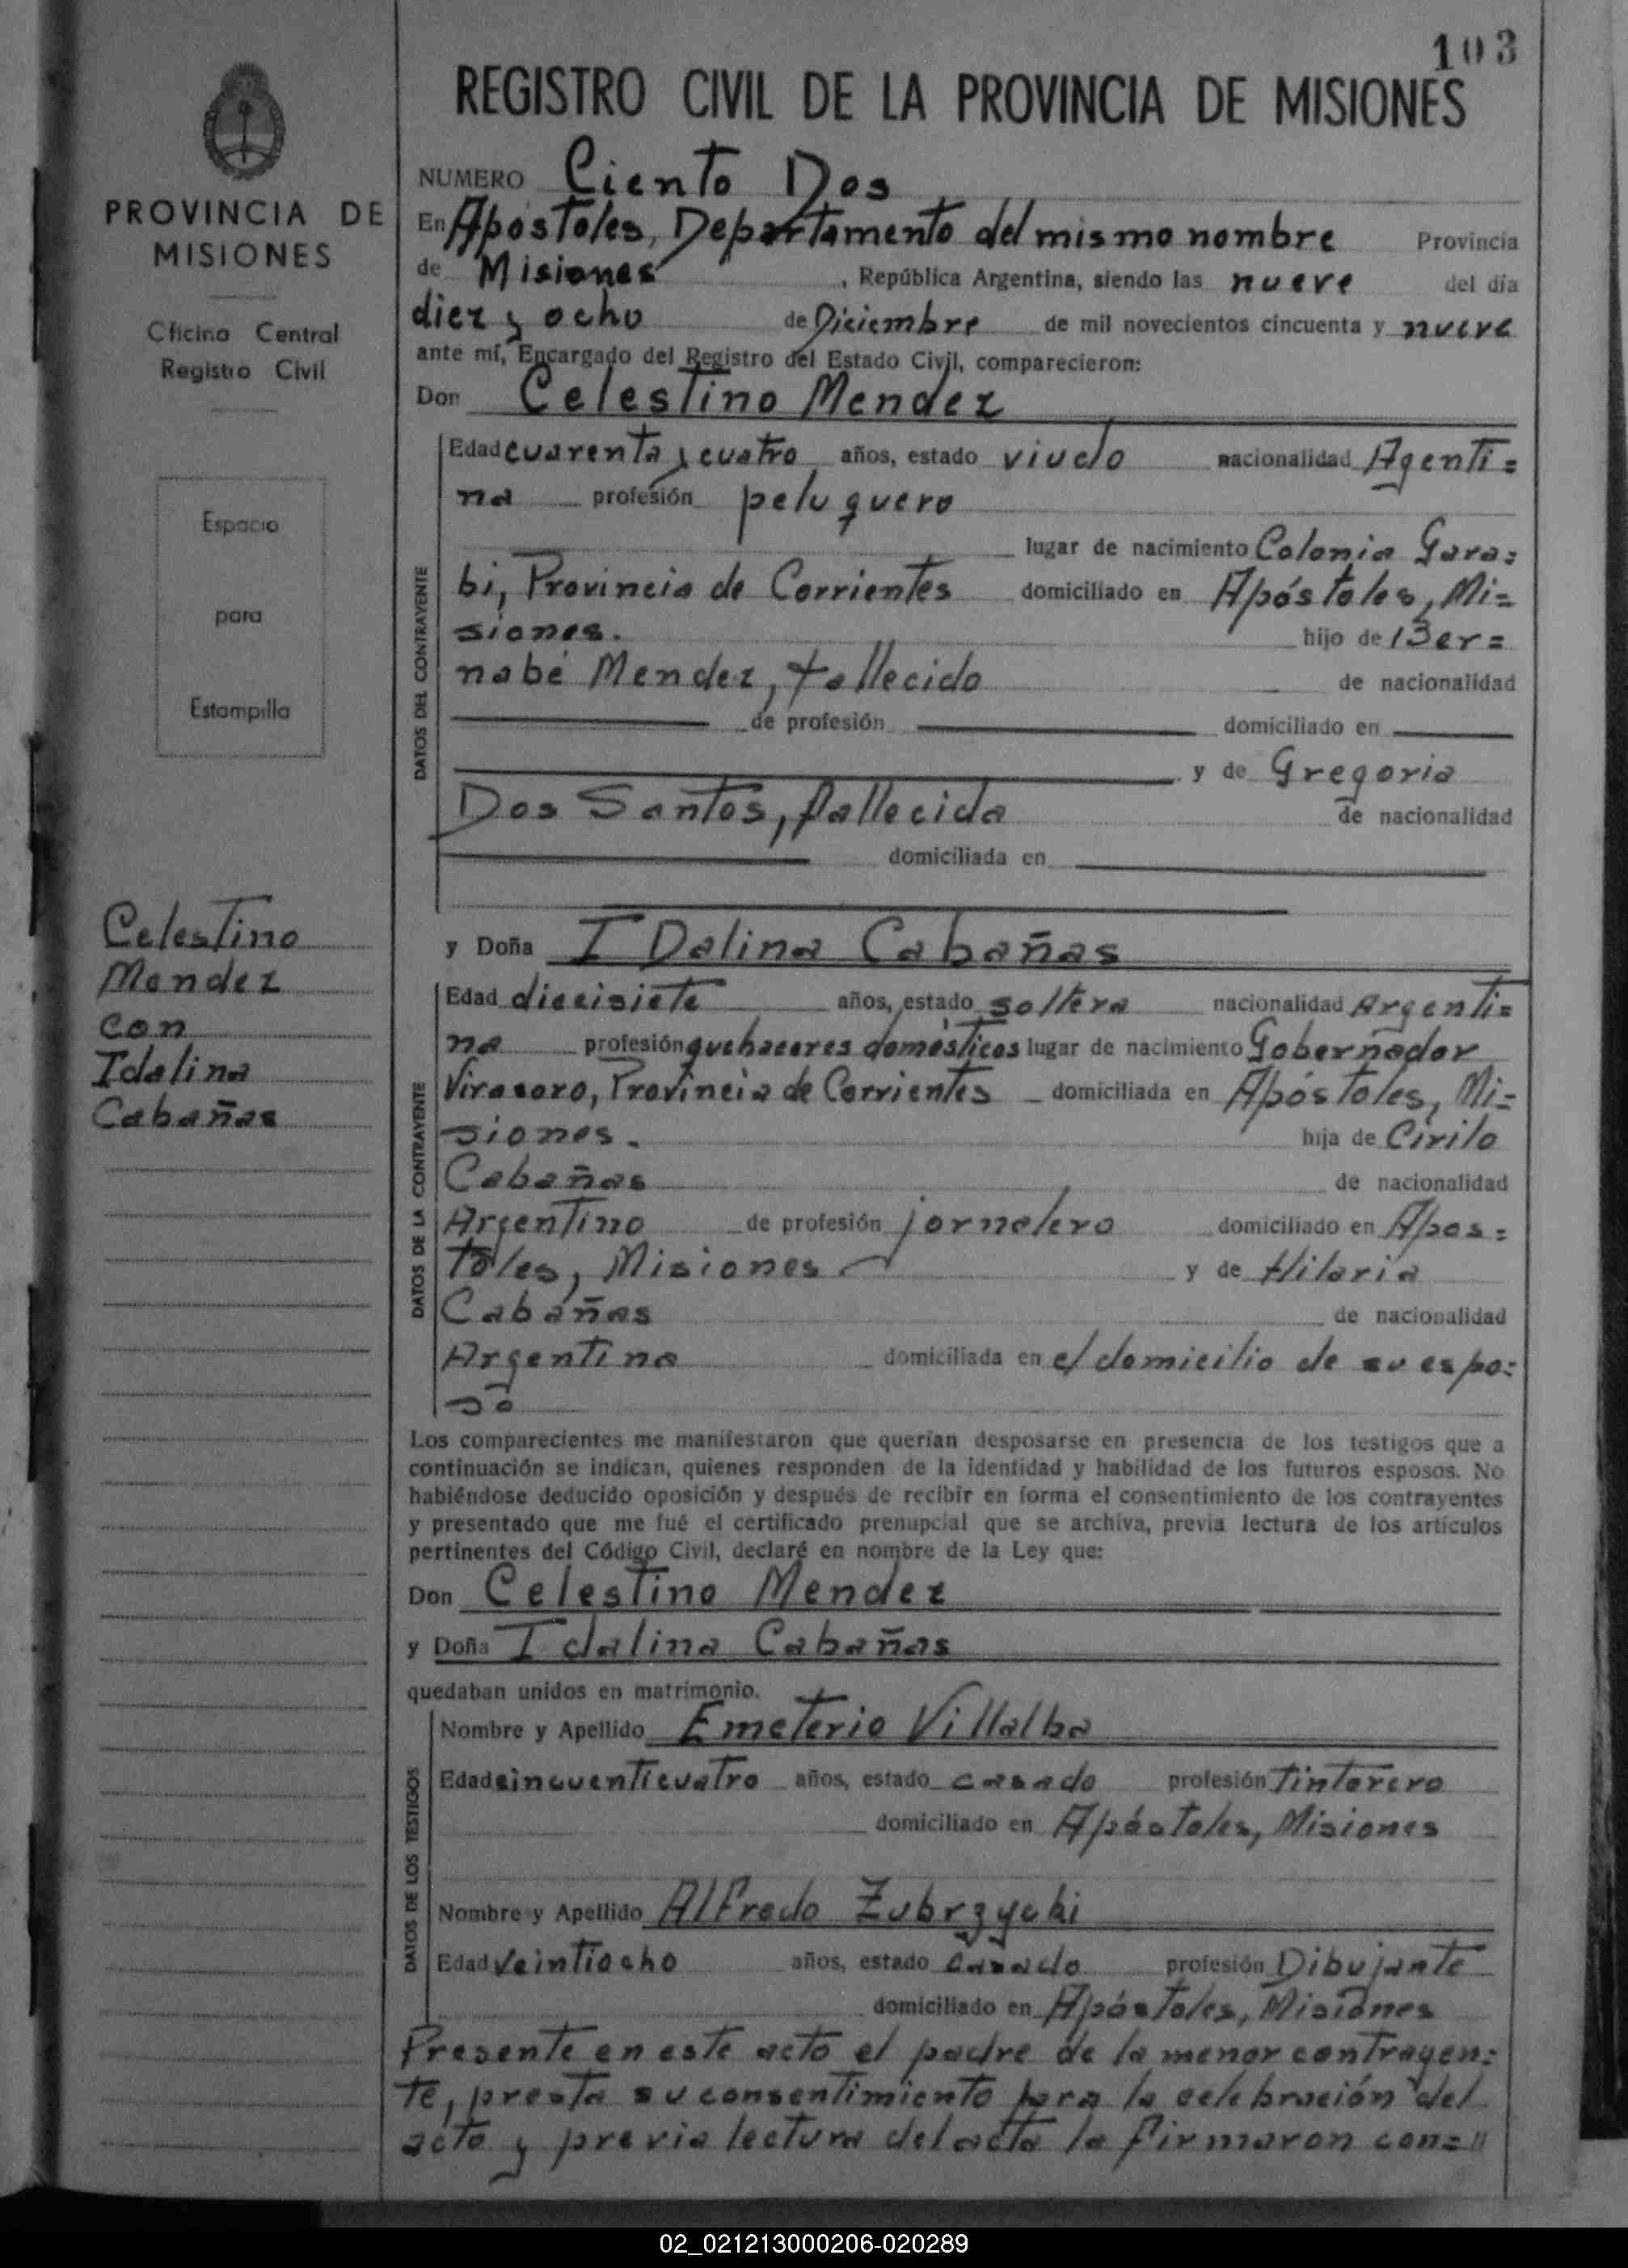 103
REGISTRO CIVIL DE LA PROVINCIA DE MISIONES
PROVINCIA DE
MISIONES
Oficina Central
Registro Civil
Espacio
para
Estampilla
Celestino
Mendez
con
Idalina
Cabañas
NUMERO Ciento Dos
En Apóstoles, Departamento del mismo nombre Provincia
de Misiones, República Argentina, siendo las nueve del día
diez y ocho de Diciembre de mil novecientos cincuenta y nueve
ante mí, Encargado del Registro del Estado Civil, comparecieron:
Don Celestino Mendez
DATOS DEL CONTRAYENTE
Edad cuarenta y cuatro años, estado viudo nacionalidad Agenti=
na profesión peluquero
lugar de nacimiento Colonia Gara=
bi, Provincia de Corrientes domiciliado en Apóstoles, Mi=
siones. hijo de Ber=
nabé Mendez, fallecido de nacionalidad
de profesión domiciliado en
y de Gregoria
Dos Santos, fallecida de nacionalidad
domiciliada en
y Doña I Dalina Cabañas
DATOS DE LA CONTRAYENTE
Edad diecisiete años, estado soltera nacionalidad Argenti=
na profesión quehaceres domésticos lugar de nacimiento Gobernador
Virasoro, Provincia de Corrientes domiciliada en Apóstoles, Mi=
siones. hija de Cirilo
Cabañas de nacionalidad
Argentino de profesión jornalero domiciliado en Apos=
toles, Misiones y de Hilaria
Cabañas de nacionalidad
Argentina domiciliada en el domicilio de su espo=
so
Los comparecientes me manifestaron que querían desposarse en presencia de los testigos que a
continuación se indican, quienes responden de la identidad y habilidad de los futuros esposos. No
habiéndose deducido oposición y después de recibir en forma el consentimiento de los contrayentes
y presentado que me fué el certificado prenupcial que se archiva, previa lectura de los artículos
pertinentes del Código Civil, declaré en nombre de la Ley que:
Don Celestino Mendez
y Doña Idalina Cabañas
quedaban unidos en matrimonio.
DATOS DE LOS TESTIGOS
Nombre y Apellido Emeterio Villalba
Edad cincuenticuatro años, estado casado profesión Tintorero
domiciliado en Apóstoles, Misiones
Nombre y Apellido Alfredo Zubrzycki
Edad Veintiocho años, estado casado profesión Dibujante
domiciliado en Apóstoles, Misiones
Presente en este acto el padre de la menor contrayen=
te, presta su consentimiento para la celebración del
acto y previa lectura del acta la firmaron con=//
02_021213000206-020289